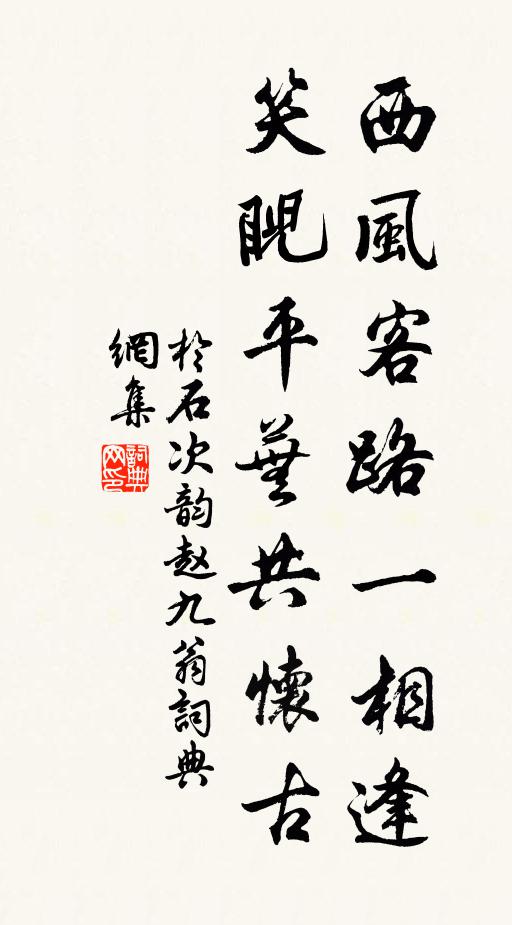 西風客路一相逢
笑睨平蕪共懷古
於石次韵赵九翁詞典
網集
詞典
网印